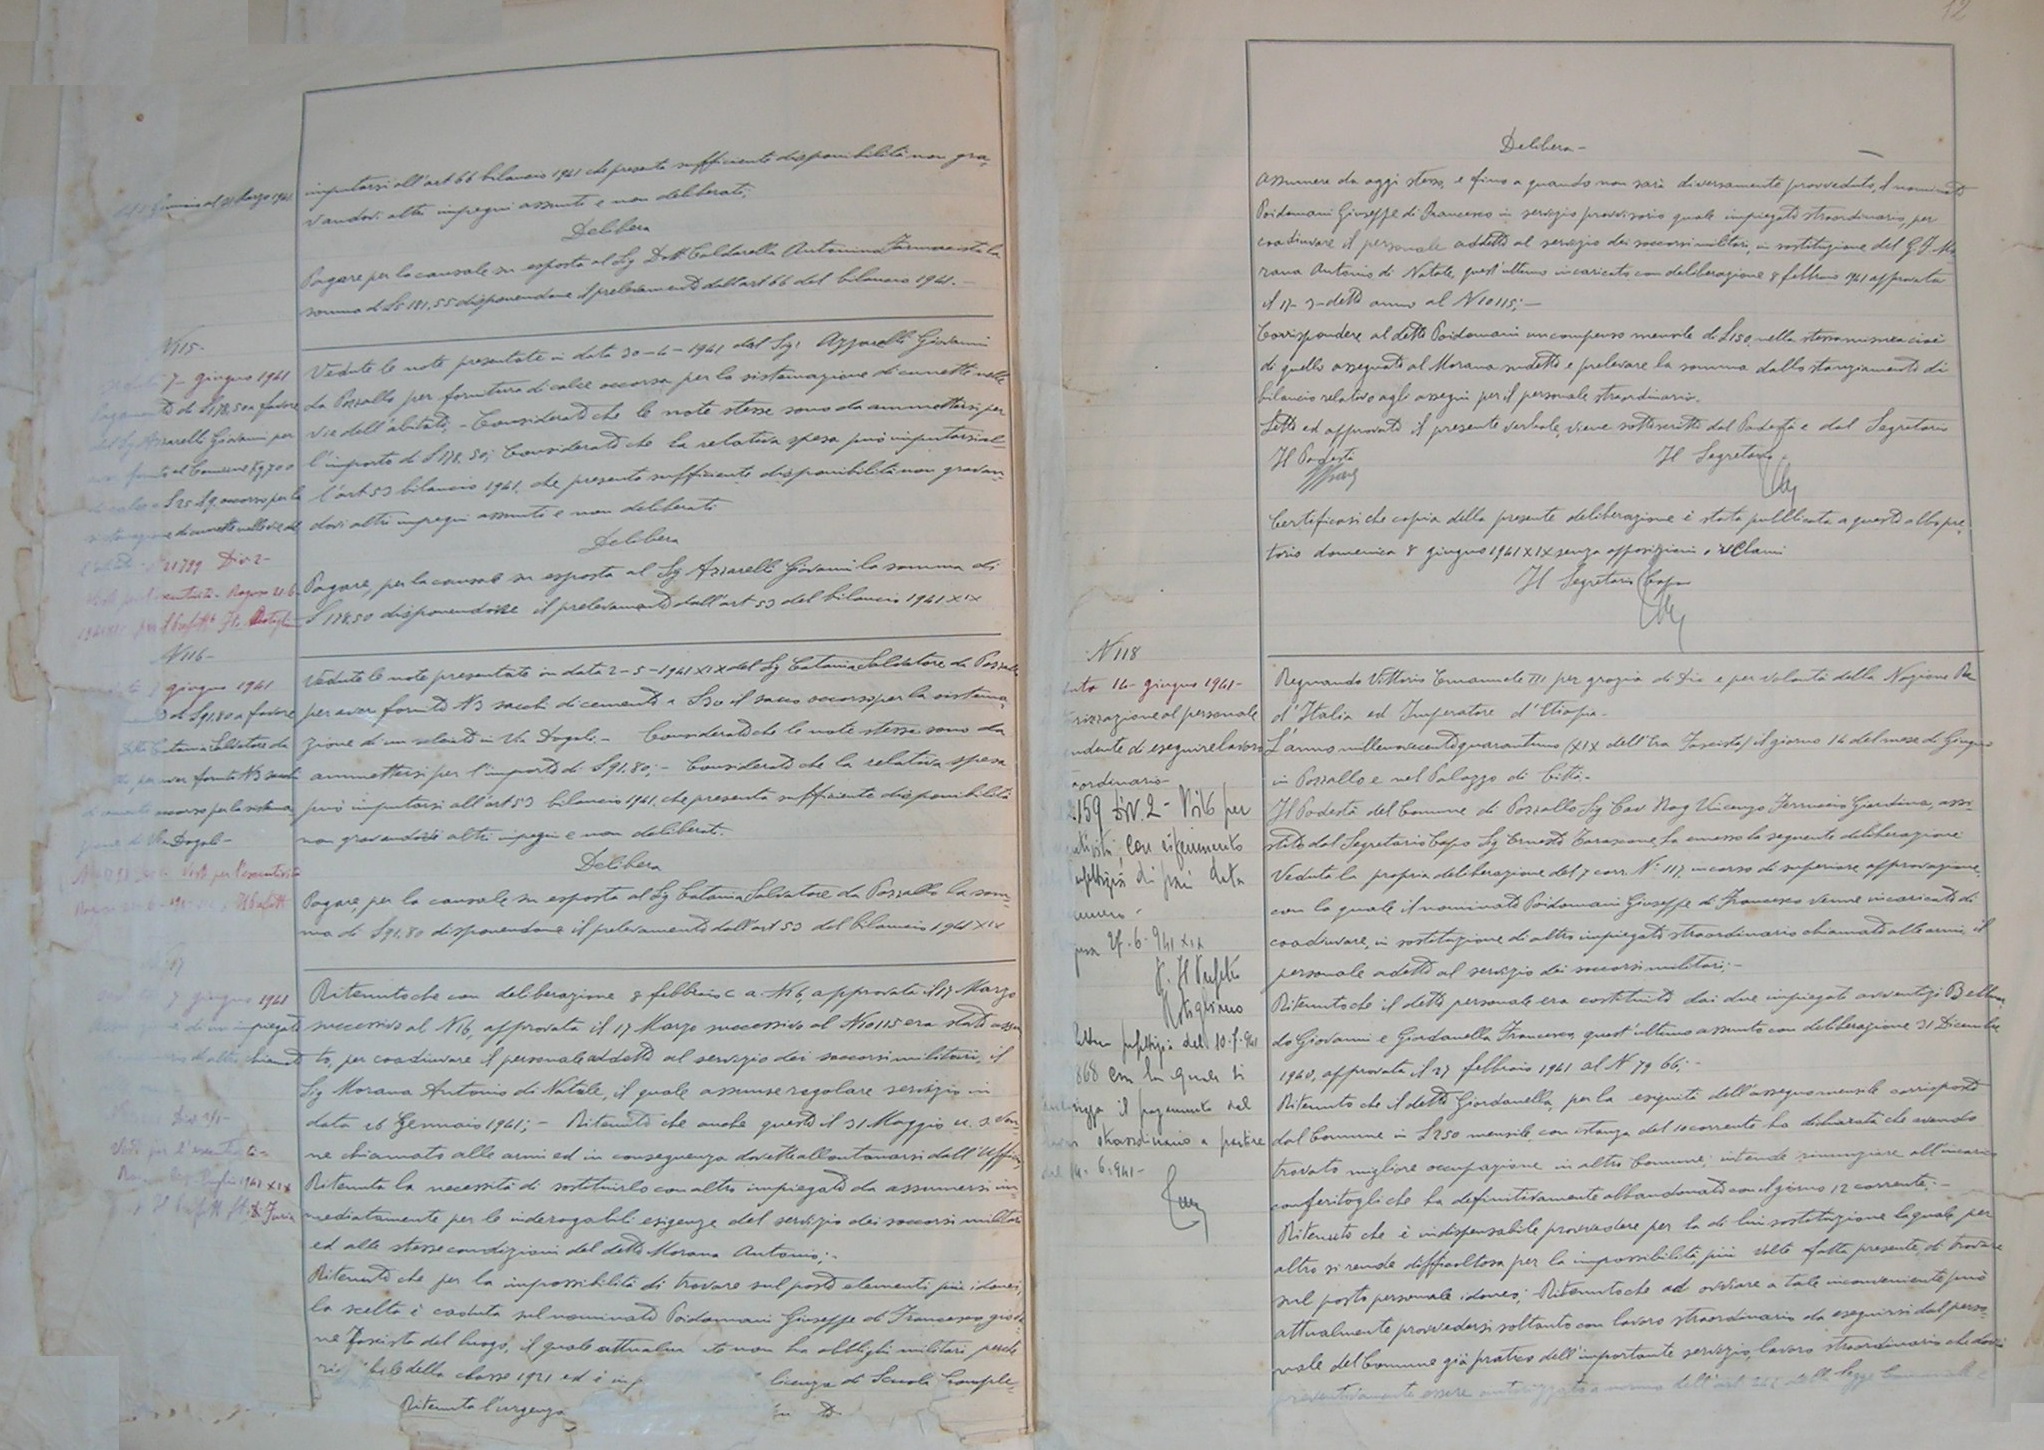 Gennaio al 31 Marzo 1941
imputarsi all'art 66 bilancio 1941 che presenta sufficiente disponibilità non gra-
vandovi altri impegni assunti e non deliberati;
Delibera
Pagare per la causale su esposta al Sig Dott Caldarella Antonino Farmacista la
somma di L 181,55 disponendone il prelevamento dall'art 66 del bilancio 1941.-
N 115-
7- giugno 1941
Pagamento di L 178,50 a favore
del Sig Azzarelli Giovanni per
aver fornito al Comune Kg 700
L 25 q occorso per la
sistemazione di cunette nelle vie del
21799 Div 2-
Vedute le note presentate in data 30-4-1941 dal Sig: Azzarelli Giovanni
da Pozzallo per fornitura di calce occorsa per la sistemazione di cunette nelle
vie dell'abitato; - Considerato che le note stesse sono da ammettersi per
l'importo di L 178,50; Considerato che la relativa spesa può imputarsi al-
l'art 53 bilancio 1941, che presenta sufficiente disponibilità non gravan-
dovi altri impegni assunti e non deliberati
Delibera
Pagare, per la causale su esposta al Sig Azzarelli Giovanni la somma di
L 178,50 disponendone il prelevamento dall'art 53 del bilancio 1941 XIX
N 116-
giugno 1941
di L 91,80 a favore
Catania Salvatore da
per aver fornito N 3 sacchi
di cemento occorso per la sistema
zione di Via Dogali-
Visto per l'esecutività
Vedute le note presentate in data 2-5-1941 XIX dal Sig Catania Salvatore da Pozzallo
per aver fornito N 3 sacchi di cemento a L 30 il sacco occorso per la sistema-
zione di un selciato in Via Dogali.- Considerato che le note stesse sono da
ammettersi per l'importo di L 91,80;- Considerato che la relativa spesa
può imputarsi all'art 53 bilancio 1941, che presenta sufficiente disponibilità
non gravandovi altri impegni e non deliberati.
Delibera
Pagare, per la causale su esposta al Sig Catania Salvatore da Pozzallo la som-
ma di L 91,80 disponendone il prelevamento dall'art 53 del bilancio 1941 XIX
7 giugno 1941
di un impiegato
chiamato
Visto per l'esecutività
Ritenuto che con deliberazione 8 febbraio c a N 16, approvata il 17 Marzo
successivo al N 16, approvata il 17 Marzo successivo al N 10115 era stato assun
to, per coadiuvare il personale addetto al servizio dei soccorsi militari, il
Sig Morana Antonio di Natale, il quale assunse regolare servizio in
data 26 Gennaio 1941;- Ritenuto che anche questo il 31 Maggio u. s. ven-
ne chiamato alle armi ed in conseguenza dovette allontanarsi dall'Ufficio;
Ritenuta la necessità di sostituirlo con altro impiegato da assumersi im-
mediatamente per le inderogabili esigenze del servizio dei soccorsi militari
ed alle stesse condizioni del detto Morana Antonio;-
Ritenuto che per la impossibilità di trovare sul posto elementi più idonei,
la scelta è caduta sul nominato Poidomani Giuseppe di Francesco, giova-
ne Fascista del luogo, il quale non ha obblighi militari perchè
della classe 1921 ed è licenza di Scuola Comple-
Ritenuta l'urgenza
12
Delibera-
Assumere da oggi stesso, e fino a quando non sarà diversamente provveduto, il nominato
Poidomani Giuseppe di Francesco in servizio provvisorio quale impiegato straordinario, per
coadiuvare il personale addetto al servizio dei soccorsi militari, in sostituzione del G. F. Mo
rana Antonio di Natale, quest'ultimo incaricato con deliberazione 8 febbraio 1941 approvata
il 17-3-detto anno al N 10115;-
Corrispondere al detto Poidomani un compenso mensile di L 150, nella stessa misura cioè
di quello assegnato al Morana sudetto e prelevare la somma dallo stanziamento di
bilancio relativo agli assegni per il personale straordinario.
Letto ed approvato il presente verbale, viene sottoscritto dal Podestà e dal Segretario
Il Podestà Il Segretario
Certificasi che copia della presente deliberazione è stata pubblicata a questo albo pre
torio domenica 8 giugno 1941 XIX senza opposizioni o reclami
Il Segretario Capo
N 118
14- giugno 1941-
rizzazione al personale
ndente di eseguire lavoro
aordinario-
159 Div. 2- Visto per
con riferimento
di pari data
numero.
27-6-941 XIX
Il Prefetto
10-7-941
868 con la quale si
il pagamento del
straordinario a partire
14-6-941-
Regnando Vittorio Emanuele III per grazia di Dio e per volontà della Nazione Re
d'Italia ed Imperatore d'Etiopia-
L'anno millenovecentoquarantuno (XIX dell'Era Fascista) il giorno 14 del mese di Giugno
in Pozzallo e nel Palazzo di Città-
Il Podestà del Comune di Pozzallo Sig Cav Rag Vincenzo Ferruccio Giardina, assi-
stito dal Segretario Capo Sig Ernesto Tarascone, ha emesso la seguente deliberazione
Veduta la propria deliberazione del 7 corr. N° 117 in corso di superiore approvazione,
con la quale il nominato Poidomani Giuseppe di Francesco venne incaricato di
coadiuvare, in sostituzione di altro impiegato straordinario chiamato alle armi, il
personale adetto al servizio dei soccorsi militari;-
Ritenuto che il detto personale era costituito dai due impiegati avventizi
do Giovanni e Giordanella Francesco, quest'ultimo assunto con deliberazione 31 Dicembre
1940, approvata il 27 febbraio 1941 al N 7966;-
Ritenuto che il detto Giordanella, per la esiguità dell'assegno mensile corrisposto
dal Comune in L 250 mensile, con istanza del 10 corrente ha dichiarato che avendo
trovato migliore occupazione in altro Comune; intende rinunziare all'incarico
conferitogli che ha definitivamente abbandonato con il giorno 12 corrente;-
Ritenuto che è indispensabile provvedere per la di lui sostituzione la quale per
altro si rende difficoltosa per la impossibilità, più volte fatta presente, di trovare
sul posto personale idoneo; Ritenuto che ad ovviare a tale inconveniente può
attualmente provvedersi soltanto con lavoro straordinario da eseguirsi dal perso-
nale del Comune già pratico dell'importante servizio, lavoro straordinario che dovrà
preventivamente essere autorizzato a norma dell'art della legge Comunale e